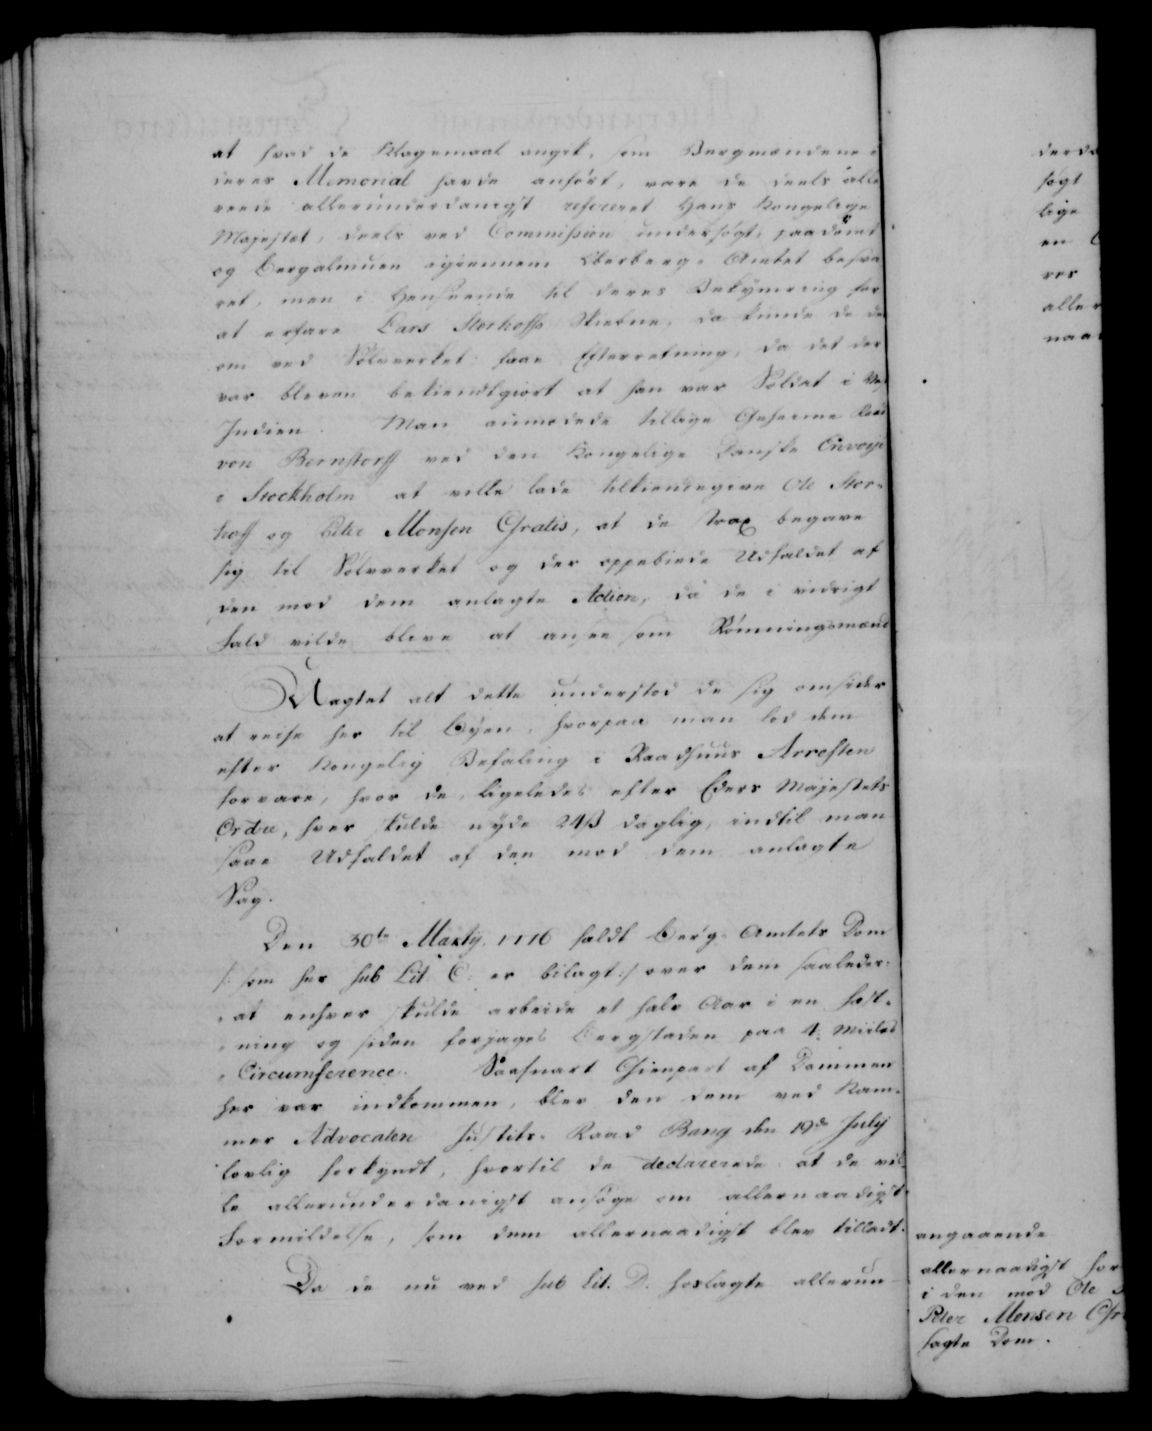 at hvad de Klagemaal angik, som Bergmændene i
deres Memorial havde anført, vare de deels alle
reede allerunderdanigst refereret Hans Kongelige
Majestæt, deels ved Commission undersøgt, paadømt
og Bergalmuen igiennem Oberberg-Amtet besva
ret, men i Henseende til deres Bekymring for
at erfare Lars Storhoffs Skiebne, da kunde de der
om ved Sølvverket faae Efterretning, da det der
var bleven bekiendtgiort at han var Soldat i Vest
Indien. Man anmodede tillige Geheime Raad
von Bernstorff ved den Kongelige Danske Envoyé
i Stockholm at ville lade tilkiendegive Ole Stor-
hoff og Peter Monsen Gratis, at de strax begave
sig til Sølvverket og der oppebiede Udfaldet af
den mod dem anlagte Action, da de i vidrigt
Fald vilde blive at ansee som Rømningsmænd
Uagtet alt dette understod de sig omsider
at reise her til Byen, hvorpaa man lod dem
efter Kongelig Befaling i Raadhuus Arresten
forvare, hvor de, ligeledes efter Eders Majestæts
Ordre, hver skulde nyde 24 ß daglig, indtil man
saae Udfaldet af den mod dem anlagte
Sag.
Den 30te Martij 1776 faldt Berg-Amtets Dom
/: som her sub Lit. C. er bilagt :/ over dem saaledes:
"at enhver skulde arbeide et halv Aar i en Fæst-
"ning og siden forjages Bergstaden paa 4 Miiles
"Circumference. Saasnart Gienpart af Dommen
her var indkommen, blev den dem ved Kam-
mer Advocaten Justits-Raad Bang den 19de July
lovlig forkyndt, hvortil de declarerede at de vil
le allerunderdanigst ansøge om allernaadigst
Formildelse, som dem allernaadigst blev tilladt.
Da de nu ved sub Lit. D. hoslagte allerun
søgt
lige
en
res
aller
naa
angaaende
allernaadigst for
i den mod Ole S
Peter Monsen Gr
fagte Dom.